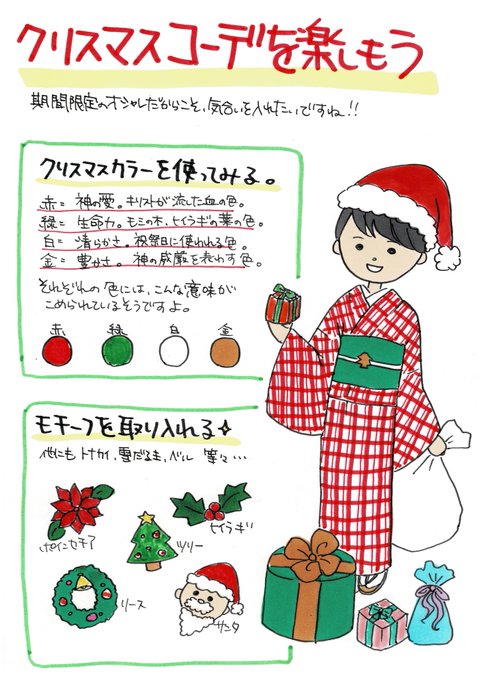 クリスマスコーデを楽しもう
期間限定のオシャレだからこそ、気合いを入れたいですね!!
クリスマスカラーを使ってみる。
赤= 神の愛。キリストが流した血の色。
緑= 生命力。モミの木、ヒイラギの葉の色。
白= 清らかさ。祝祭日に使われる色。
金= 豊かさ。神の威厳を表わす色。
それぞれの色には、こんな意味が
こめられているそうですよ。
赤 緑 白 金
モチーフを取り入れる
他にもトナカイ、雪だるま、ベル 等々…
ポインセチア
ツリー
ヒイラギ
リース
サンタ